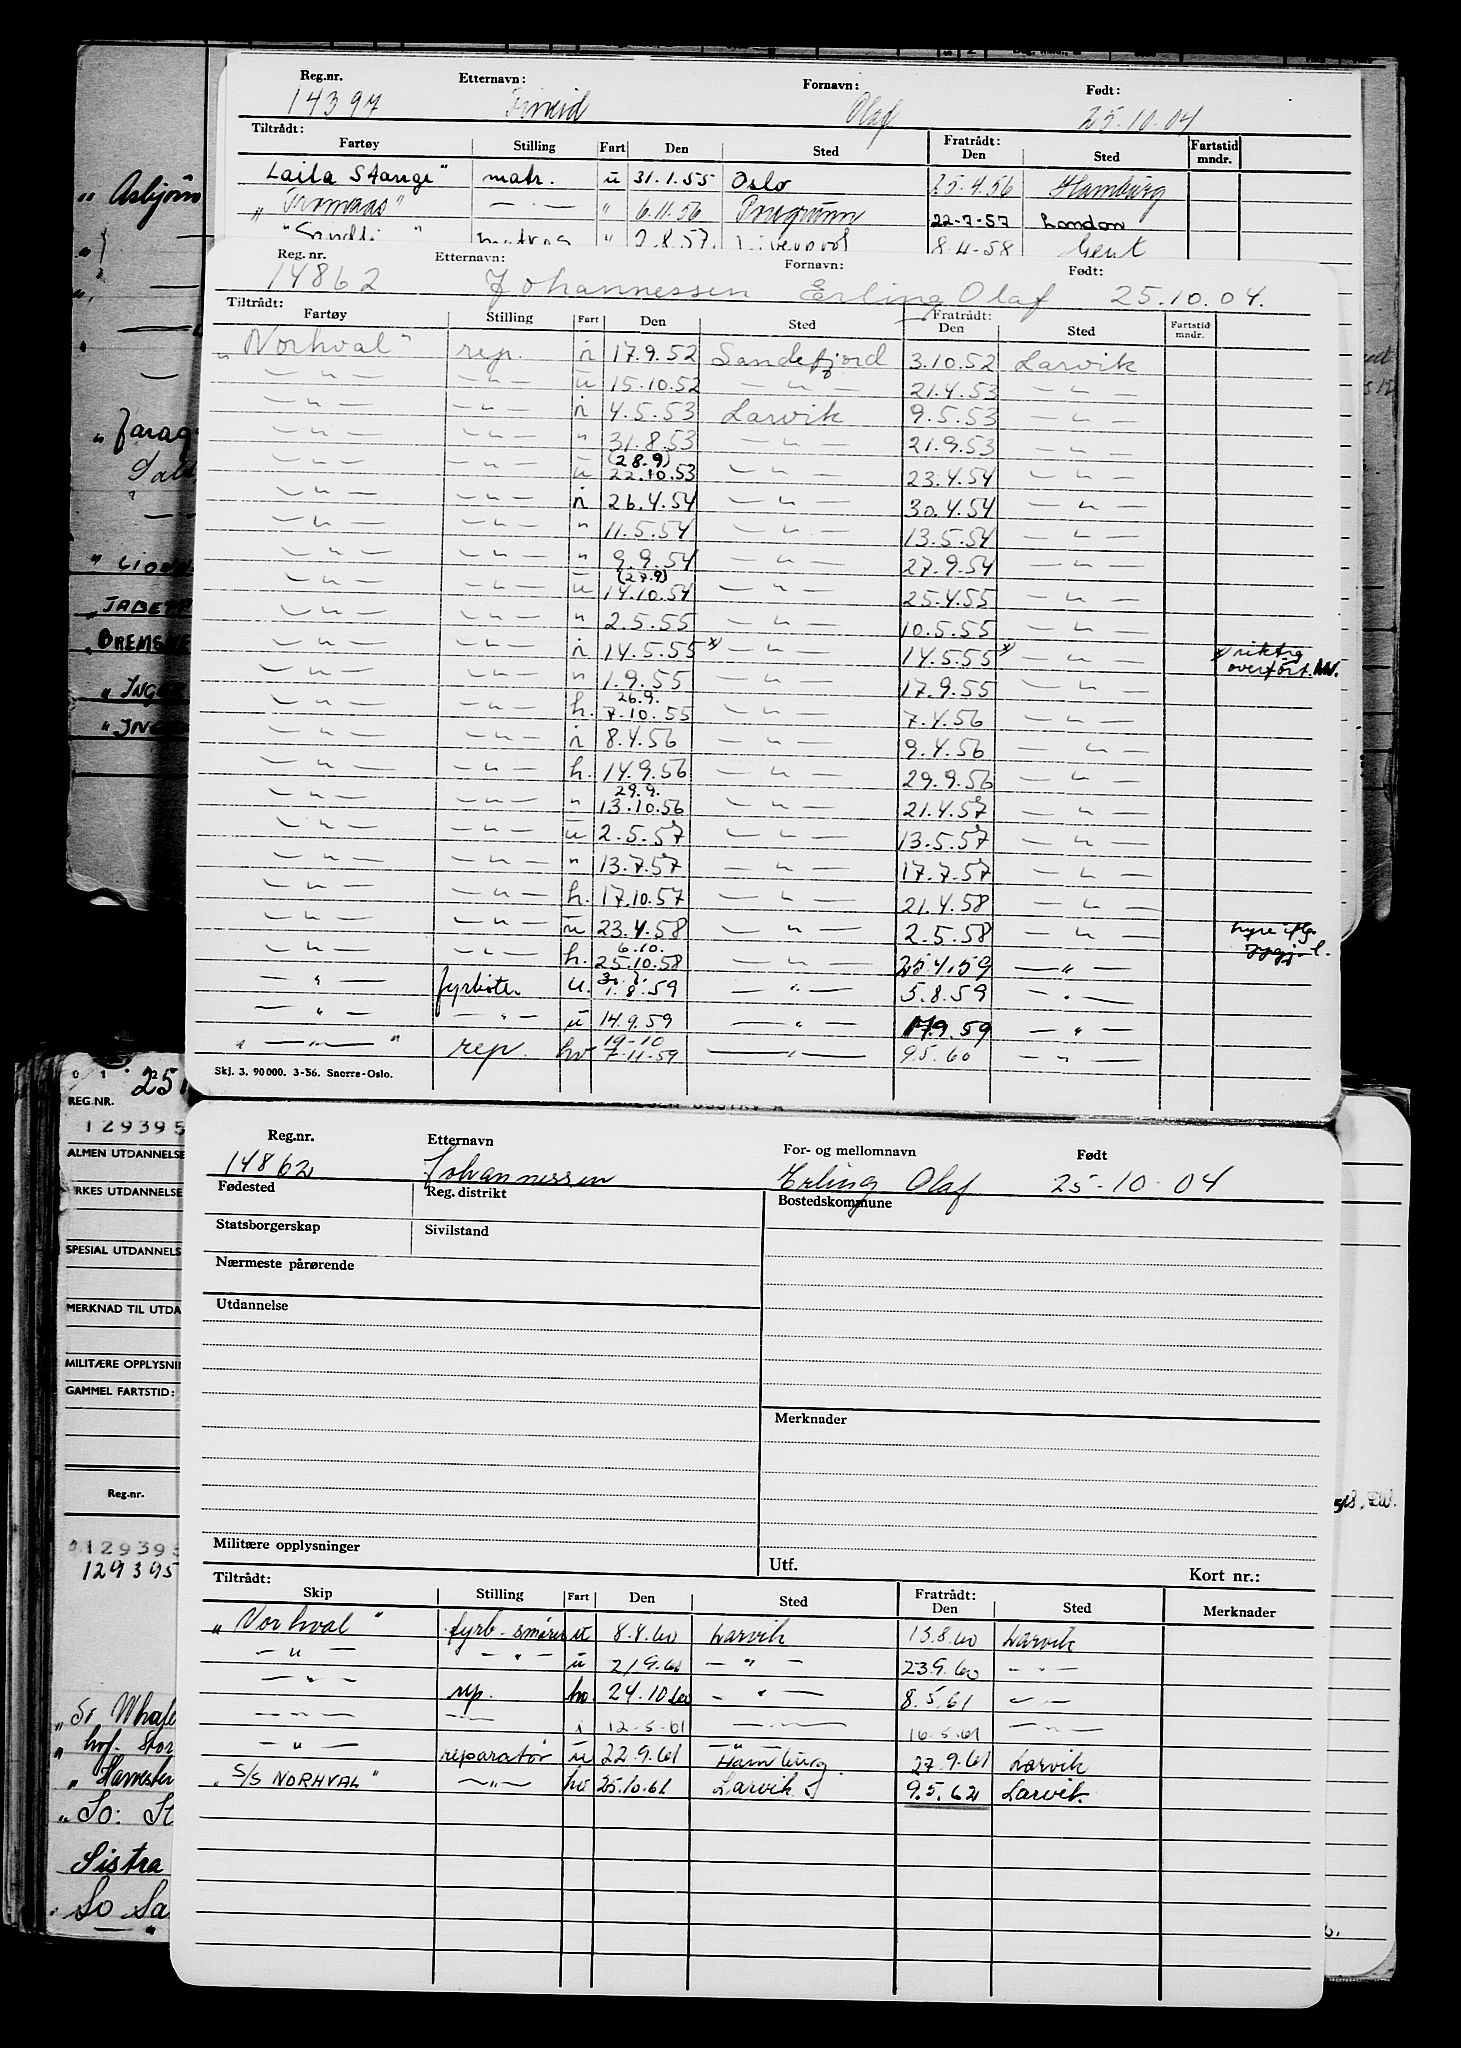 Reg.nr. Etternavn: Fornavn: Født:
14397 Olaf 25.10.04
Tiltrådt: Fratrådt:
Fartøy Stilling Fart Den Sted Den Sted Fartstid mndr.
Laila Stange" matr. u 31.1.55 Oslo 25.4.56 Hamburg
"Tromaas" — · — " 6.11.56 22-7-57 London
" 2.8.57. Liverpool 8.4.58 Gent
Reg.nr. Etternavn: Fornavn: Født:
14862 Johannessen Erling Olaf 25.10.04.
Tiltrådt: Fratrådt:
Fartøy Stilling Fart Den Sted Den Sted Fartstid mndr.
"Norhval" rep. i 17.9.52 Sandefjord 3.10.52 Larvik
— " — — " — u 15.10.52 — " — 21.4.53 — " —
— " — — " — i 4.5.53 Larvik 9.5.53 — " —
— " — — " — " 31.8.53 — " — 21.9.53 — " —
(28.9)
— " — — " — u 22.10.53 — " — 23.4.54 — " —
— " — — " — i 26.4.54 — " — 30.4.54 — " —
— " — — " — " 11.5.54 — " — 13.5.54 — " —
— " — — " — " 9.9.54 — " — 27.9.54 — " —
(27.9)
— " — — " — u 14.10.54 — " — 25.4.55 — " —
— " — — " — " 2.5.55 — " — 10.5.55 — " —
— " — — " — i 14.5.55 x) — " — 14.5.55 x) — " — x riktig
overført.
— " — — " — " 1.9.55 — " — 17.9.55 — " —
26.9.
— " — — " — h. 7.10.55 — " — 7.4.56 — " —
— " — — " — i 8.4.56 — " — 9.4.56 — " —
— " — — " — h. 14.9.56 — " — 29.9.56 — " —
29.9.
— " — — " — " 13.10.56 — " — 21.4.57 — " —
— " — — " — u 2.5.57 — " — 13.5.57 — " —
— " — — " — " 13.7.57 — " — 17.7.57 — " —
— " — — " — h. 17.10.57 — " — 21.4.58 — " —
— " — — " — u 23.4.58 — " — 2.5.58 — " — hyre
6.10.
— " — — " — h. 25.10.58 — " — 25.4.59 — " —
— " — fyrbøter u. 1.8.59 — " — 5.8.59 — " —
— " — — " — u 14.9.59 — " — 17.9.59 — " —
19-10
" — " — " rep. hv 7-11-59 — " — 9.5.60 — " —
Skj. 3. 90000. 3-56. Snorre-Oslo.
Reg.nr. Etternavn For- og mellomnavn Født
14862 Johannessen Erling Olaf 25-10-04
Fødested Reg. distrikt Bostedskommune
Statsborgerskap Sivilstand
Nærmeste pårørende
Utdannelse
Merknader
Militære opplysninger Utf. Kort nr.:
Tiltrådt: Fratrådt:
Skip Stilling Fart Den Sted Den Sted Merknader
"Norhval" fyrb-smører u 8.8.60 Larvik 13.8.60 Larvik
— " — — " — u 21.9.60 — " — 23.9.60 — " —
— " — rep. hv. 24.10.60 — " — 8.5.61 — " —
— " — — " — i 12-5-61 — " — 16-5-61 — " —
— " — reparatør u 22.9.61 Hamburg. 27.9.61 Larvik
"S/S NORHVAL" — " — hv 25.10.61 Larvik 9.5.62 Larvik.
" Asbjörn
" Farag
"JABE
BREMS
" JNG
" JN
25
REG.NR.
129395
ALMEN UTDANNELSE
YRKES UTDANNELSE
SPESIAL UTDANNELS
MERKNAD TIL UTDA
MILITÆRE OPPLYSNI
GAMMEL FARTSTID:
Reg.nr.
129395
129395
"
hvf. Stor
" Harvester
" So: St
Sistra
So Sa